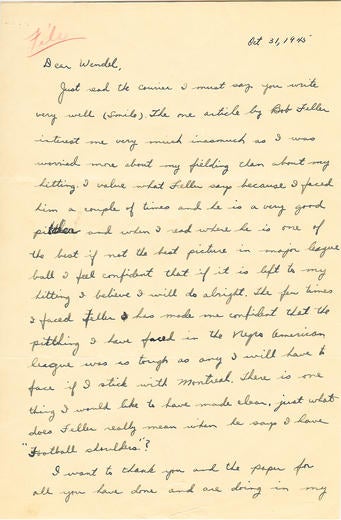 File
Oct 31, 1945
Dear Wendel,
Just read the courier I must say you write
very well (Smile). The one article by Bob Feller
interest me very much inasmuch as I was
worried more about my fielding than about my
hitting. I value what Feller says because I faced
him a couple of times and he is a very good
pitcher and when I read where he is one of
the best if not the best picture in major league
ball I feel confident that if it is left to my
hitting I believe I will do alright. The few times
I faced Feller has made me confident that the
pitching I have faced in the Negro American
league was as tough as any I will have to
face if I stick with Montreal. There is one
thing I would like to have made clear. just what
does Feller really mean when he says I have
"Football shoulders"?
I want to thank you and the paper for
all you have done and are doing in my